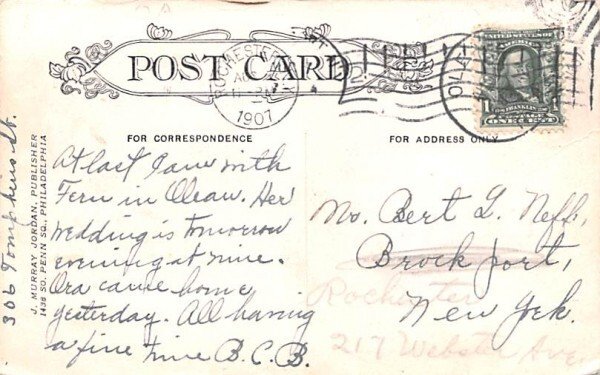 POST CARD
ROCHESTER
1907
OLEAN
UNITED STATES OF
AMERICA
FRANKLIN
POSTAGE
ONE CENT
FOR CORRESPONDENCE
FOR ADDRESS ONLY
At last I am with
Fern in Olean. Her
wedding is tomorrow
evening at nine.
Ora came home
yesterday. All having
a fine time B.C.B.
306 Tompkins St.
J. MURRAY JORDAN, PUBLISHER
1436 SO. PENN SQ., PHILADELPHIA
Mr. Bert L. Neff,
Brockport,
Rochester
New York.
217 Webster Ave.